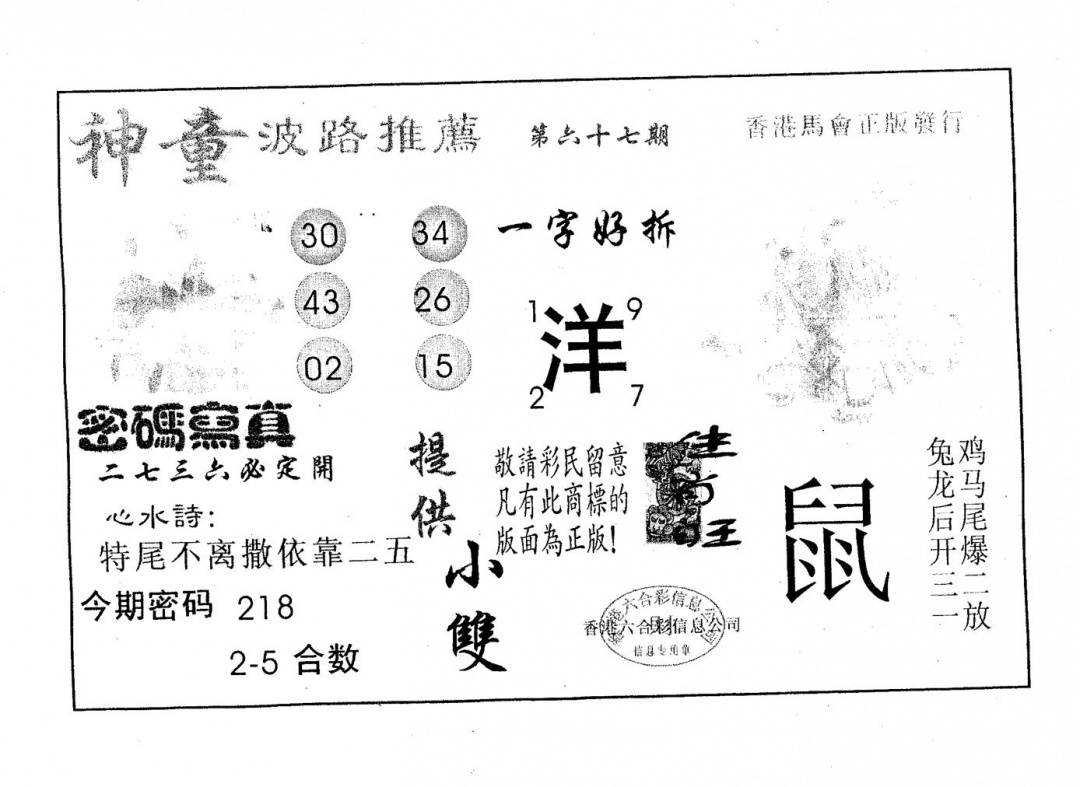 神童波路推薦 第六十七期 香港馬會正版發行
30 34
43 26
02 15
一字好拆
1 9
洋
2 7
密碼寫真
二七三六必定開
心水詩:
特尾不离撒依靠二五
今期密码 218
2-5 合数
提供
小雙
敬請彩民留意
凡有此商標的
版面為正版!
鼠
鸡马尾爆二放
兔龙后开三一
香港六合彩信息公司
信息专用章